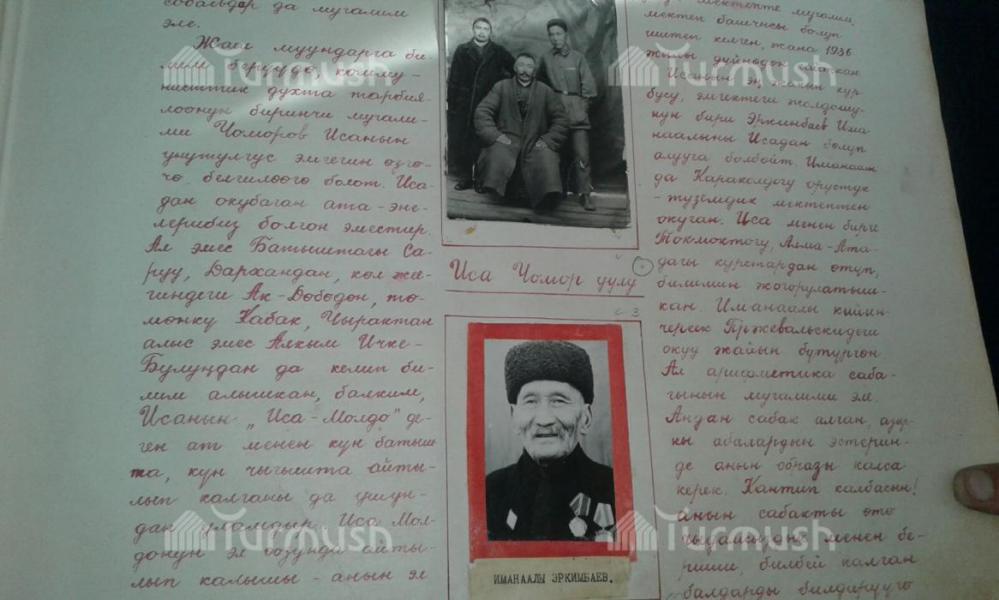 да мугалим
эле.
Жаш муундарга би-
лим берүүдө, комму-
нисттик духта тарбия-
лоонун биринчи мугали-
ми Чоморов Исанын
унутулгус эмгегин өзгө-
чө белгилөөгө болот. Иса-
дан окубаган ата-эне-
лерибиз болгон эместир.
Ал эмес Батыштагы Са-
руу, Дархандан, көл же-
гиндеги Ак-Дөбөдөн, тө-
мөнкү Кабак, Чырактан
алыс эмес Алкым Ичке-
Булуңдан да келип би-
лим алышкан, балким,
Исанын „Иса-Молдо" де-
ген ат менен күн батыш
та, күн чыгышта айты-
лып калганы да ушун-
дан уламдыр. Иса Мол-
донун эл оозунда айты-
лып калышы - анын эл
Иса Чомор уулу
ИМАНААЛЫ ЭРКИМБАЕВ.
мектепте мугалим,
мектеп башчысы болуп
иштеп келген, жана 1936
жылы дүйнөдөн кайткан.
Исанын эң жакын кур-
бусу, эмгектеги жолдошу-
нун бири Эркинбаев Има
наалыны Исадан бөлүп
алууга болбойт. Иманаалы
да Караколдогу орустук
-туземдик мектептен
окуган. Иса менен бирге
Токмоктогу, Алма-Ата-
дагы курстардан өтүп,
билимин жогорулатыш-
кан. Иманаалы кийин-
черээк Пржевальскидеги
окуу жайын бүтүргөн
Ал арифметика саба-
гынын мугалими эле.
Андан сабак алган азыр-
кы абалардын эстерин-
де анын образы калса
керек. Кантип калбасын!
Анын сабакты өтө
чыдамсыздык менен бе-
риши, билбей калган
балдарды билдирүүгө
Turmush
Turmush
Turmush
Turmush